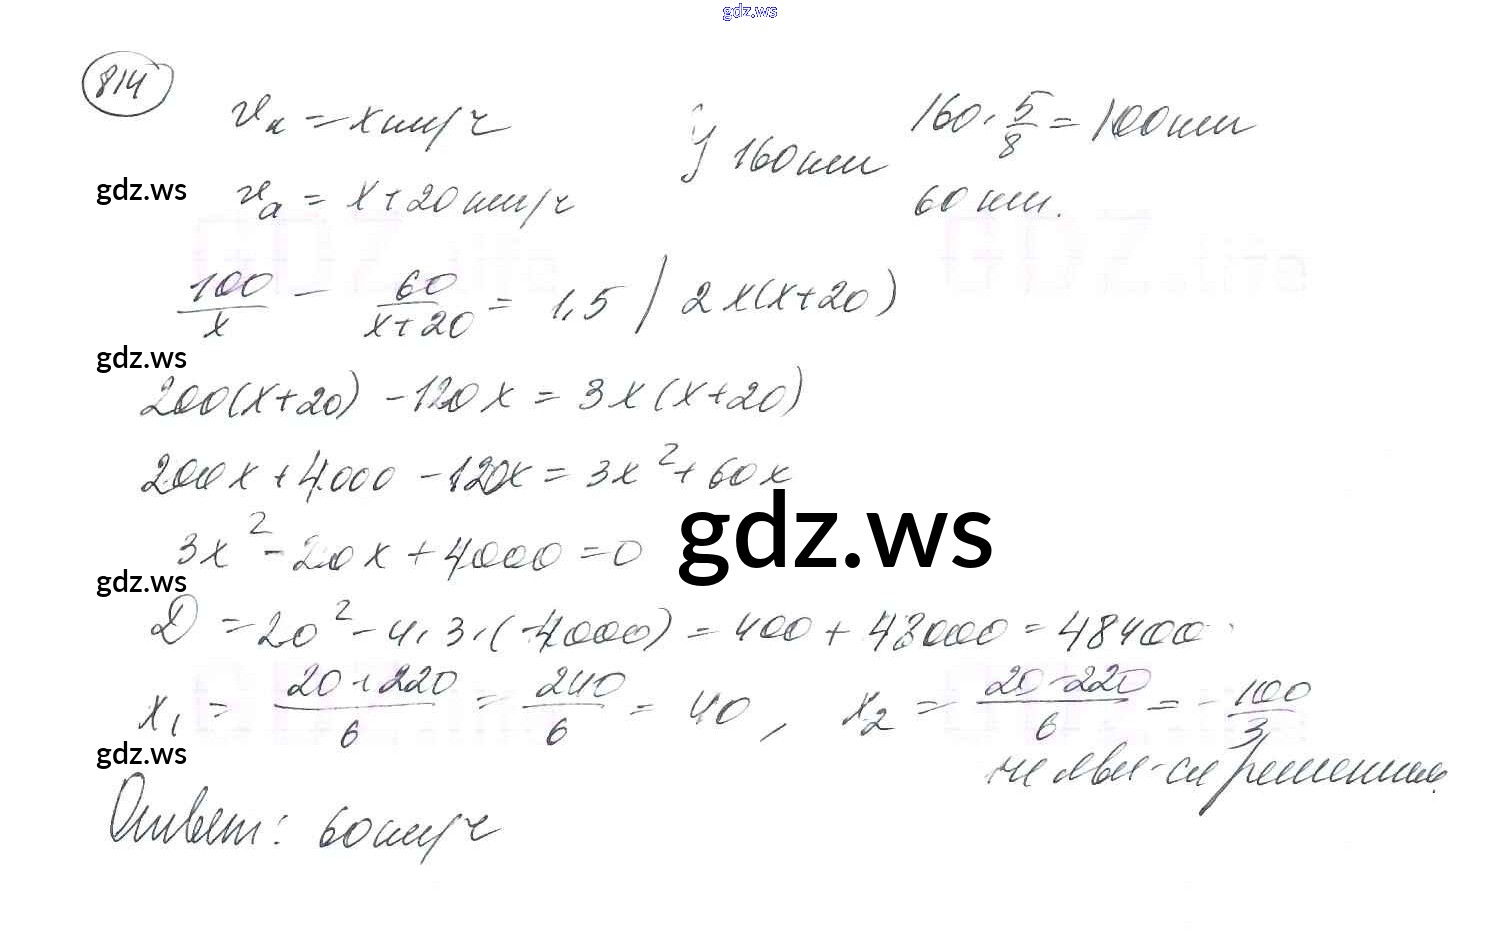 gdz.ws
814
vк = x км/ч
160 км
160 · 5/8 = 100 км
gdz.ws
vа = x + 20 км/ч
60 км.
100/x - 60/(x+20) = 1,5 / 2x(x+20)
gdz.ws
200(x+20) - 120x = 3x(x+20)
200x + 4000 - 120x = 3x² + 60x
gdz.ws
3x² - 20x + 4000 = 0
gdz.ws
D = 20² - 4·3·(-4000) = 400 + 48000 = 48400
x₁ = (20+220)/6 = 240/6 = 40, x₂ = (20-220)/6 = -100/3
gdz.ws
не явл-ся решением.
Ответ: 60 км/ч